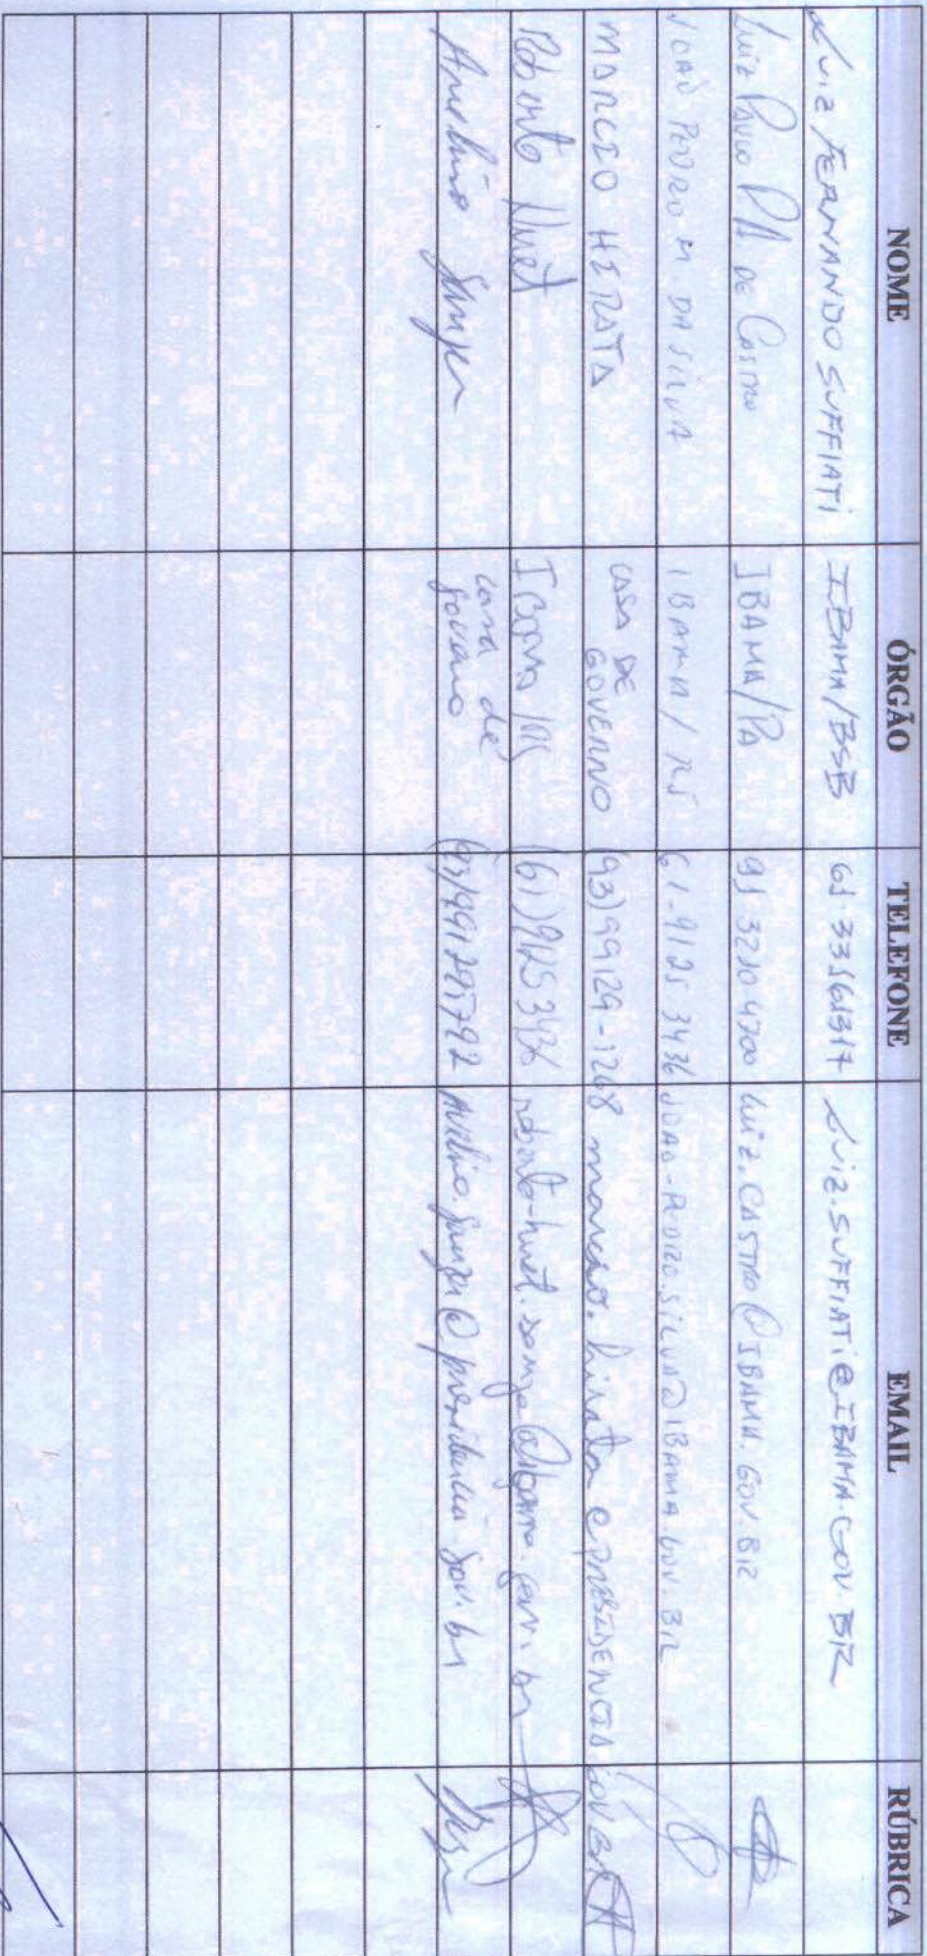 NOME ÓRGÃO TELEFONE EMAIL RÚBRICA
Luiz FERNANDO SUFFIATI IBAMA/BSB 61 33161317 Luiz.SUFFIATI@IBAMA.GOV.BR
Luiz Paulo DE CASTRO IBAMA/PA 91 3210 4700 luiz.CASTRO@IBAMA.GOV.BR
JOAO PEDRO M. DA SILVA IBAMA/RS 61-9125 3436 JOAO-PEDRO.SILVA@IBAMA.GOV.BR
MARCIO HIRATA CASA DE GOVERNO (93)99129-1268 marcio.hirata@PRESIDENCIA.GOV.BR
Roberto Huet (61)91253436
casa de governo (93)991297792 @presidencia.gov.br